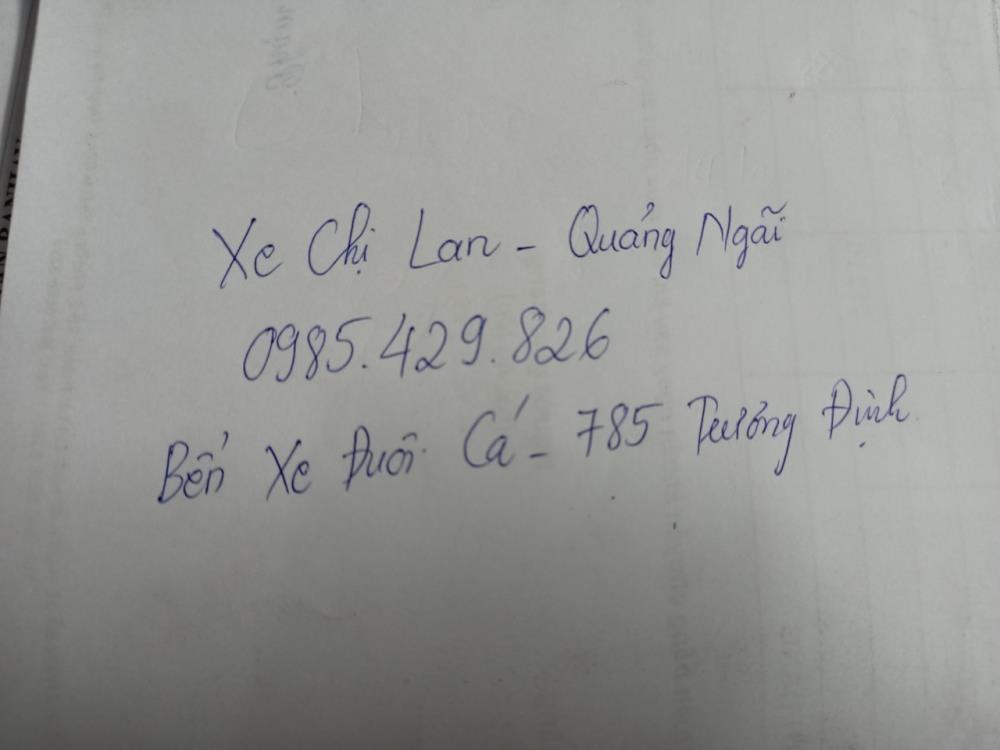 Xe Chị Lan - Quảng Ngãi
0985.429.826
Bến Xe Đuôi Cá - 785 Trương Định